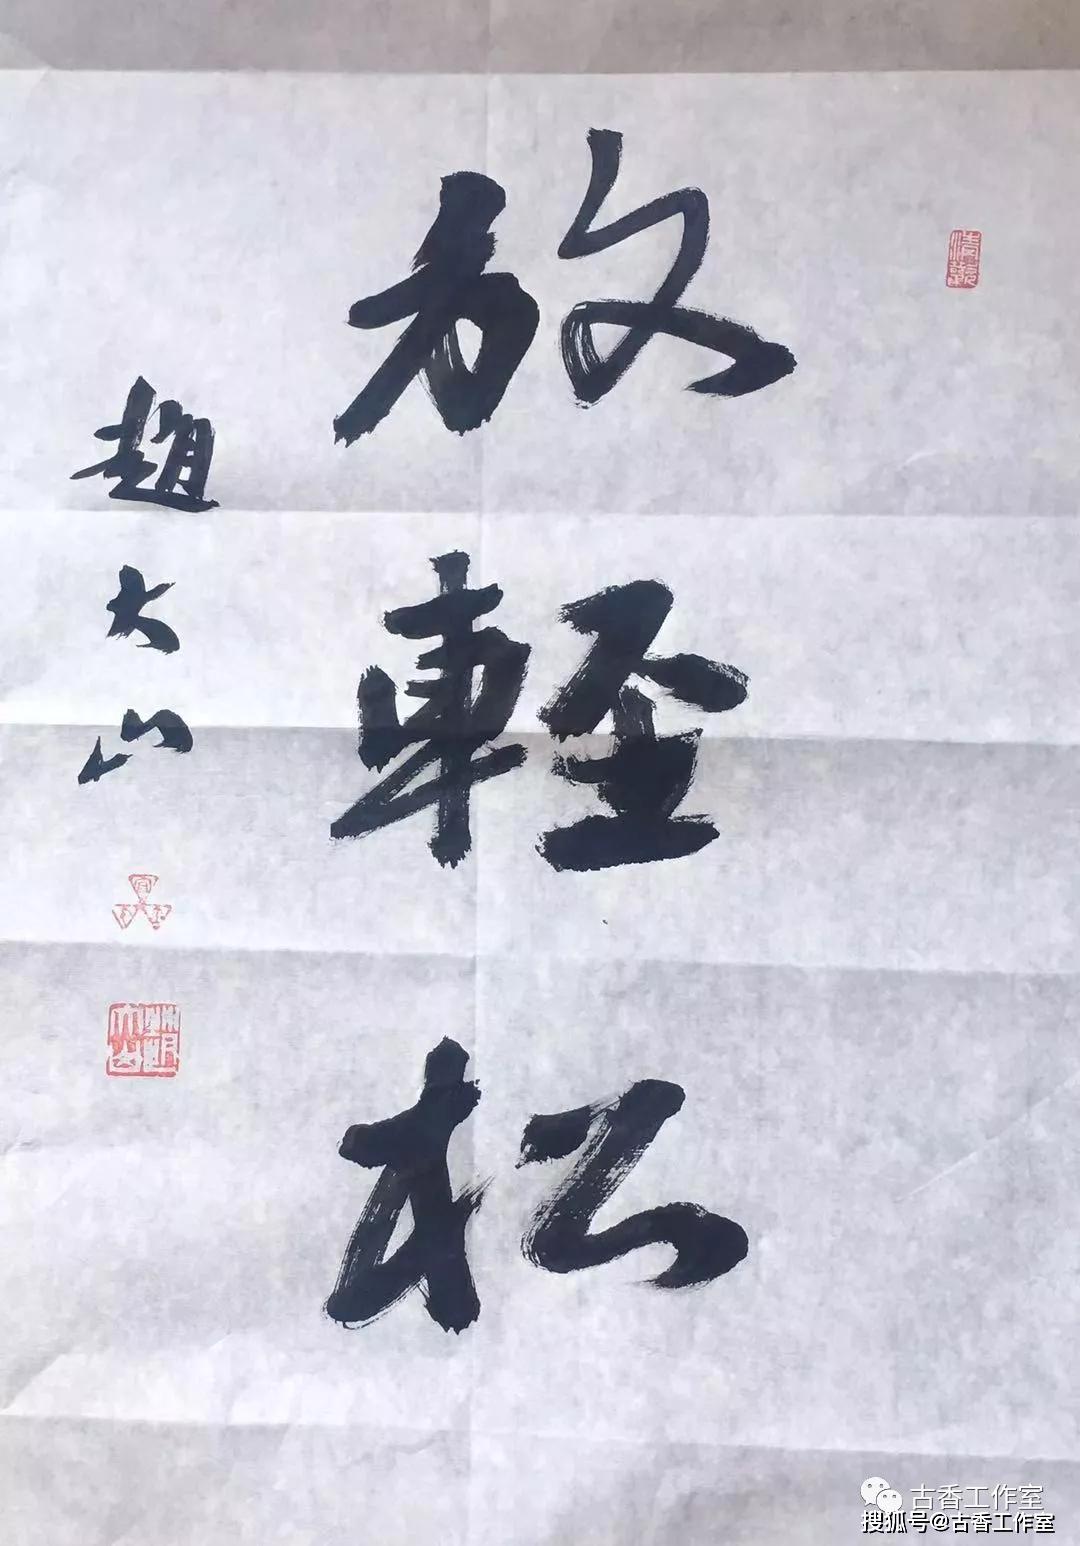 放輕松
趙大山
趙大山
古香工作室
搜狐号@古香工作室